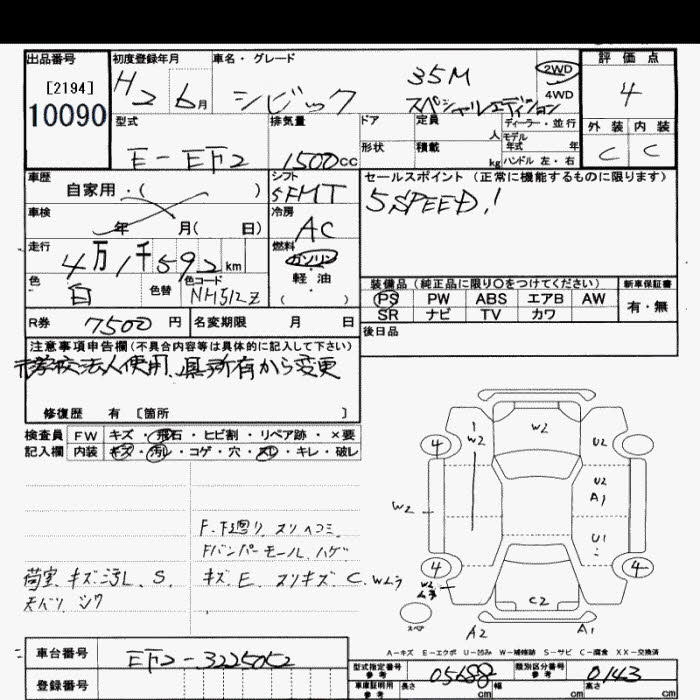 出品番号
[2194]
10090
初度登録年月
H2 6月
車名・グレード
シビック
35M
スペシャルエディション
2WD
4WD
評価点
4
外装 内装
C C
型式
E-EF2
排気量
1500cc
ドア
形状
定員
人
積載
kg
ディーラー・並行
モデル
年式 年
ハンドル 左・右
車歴
自家用・( )
車検
年 月( 日)
走行
4万1千592km
色
白
色替
色コード
NH512Z
シフト
5FMT
冷房
AC
燃料
ガソリン
・
軽油
( )
セールスポイント(正常に機能するものに限ります)
5SPEED!
装備品(純正品に限り○をつけてください)
PS PW ABS エアB AW
SR ナビ TV カワ
新車保証書
有・無
後日品
R券 7500円
名変期限 月 日
注意事項申告欄(不具合内容等は具体的に記入して下さい)
学校法人使用、県所有から変更
修復歴 有 [箇所 ]
検査員
記入欄
FW キズ・飛石・ヒビ割・リペア跡・×要
内装 キズ・汚レ・コゲ・穴・スレ・キレ・破レ
F.F廻り スリヘコミ
Fバンパーモール、ハゲ
荷室、キズ汚レ、S、 キズ、E、スリキズ C、Wムラ
天バリ シワ
1
W2
W2
U2
4
U2
A1
W2
U1
4
W2
ムラ
4
C2
スペア
A2
A1
A-キズ E-エクボ U-凹み W-補修跡 S-サビ C-腐食 XX-交換済
車台番号
EF2-3225052
登録番号
型式指定番号
参考
05688
類別区分番号
参考
0143
車庫証明用
参考
長さ cm 幅 cm 高さ cm